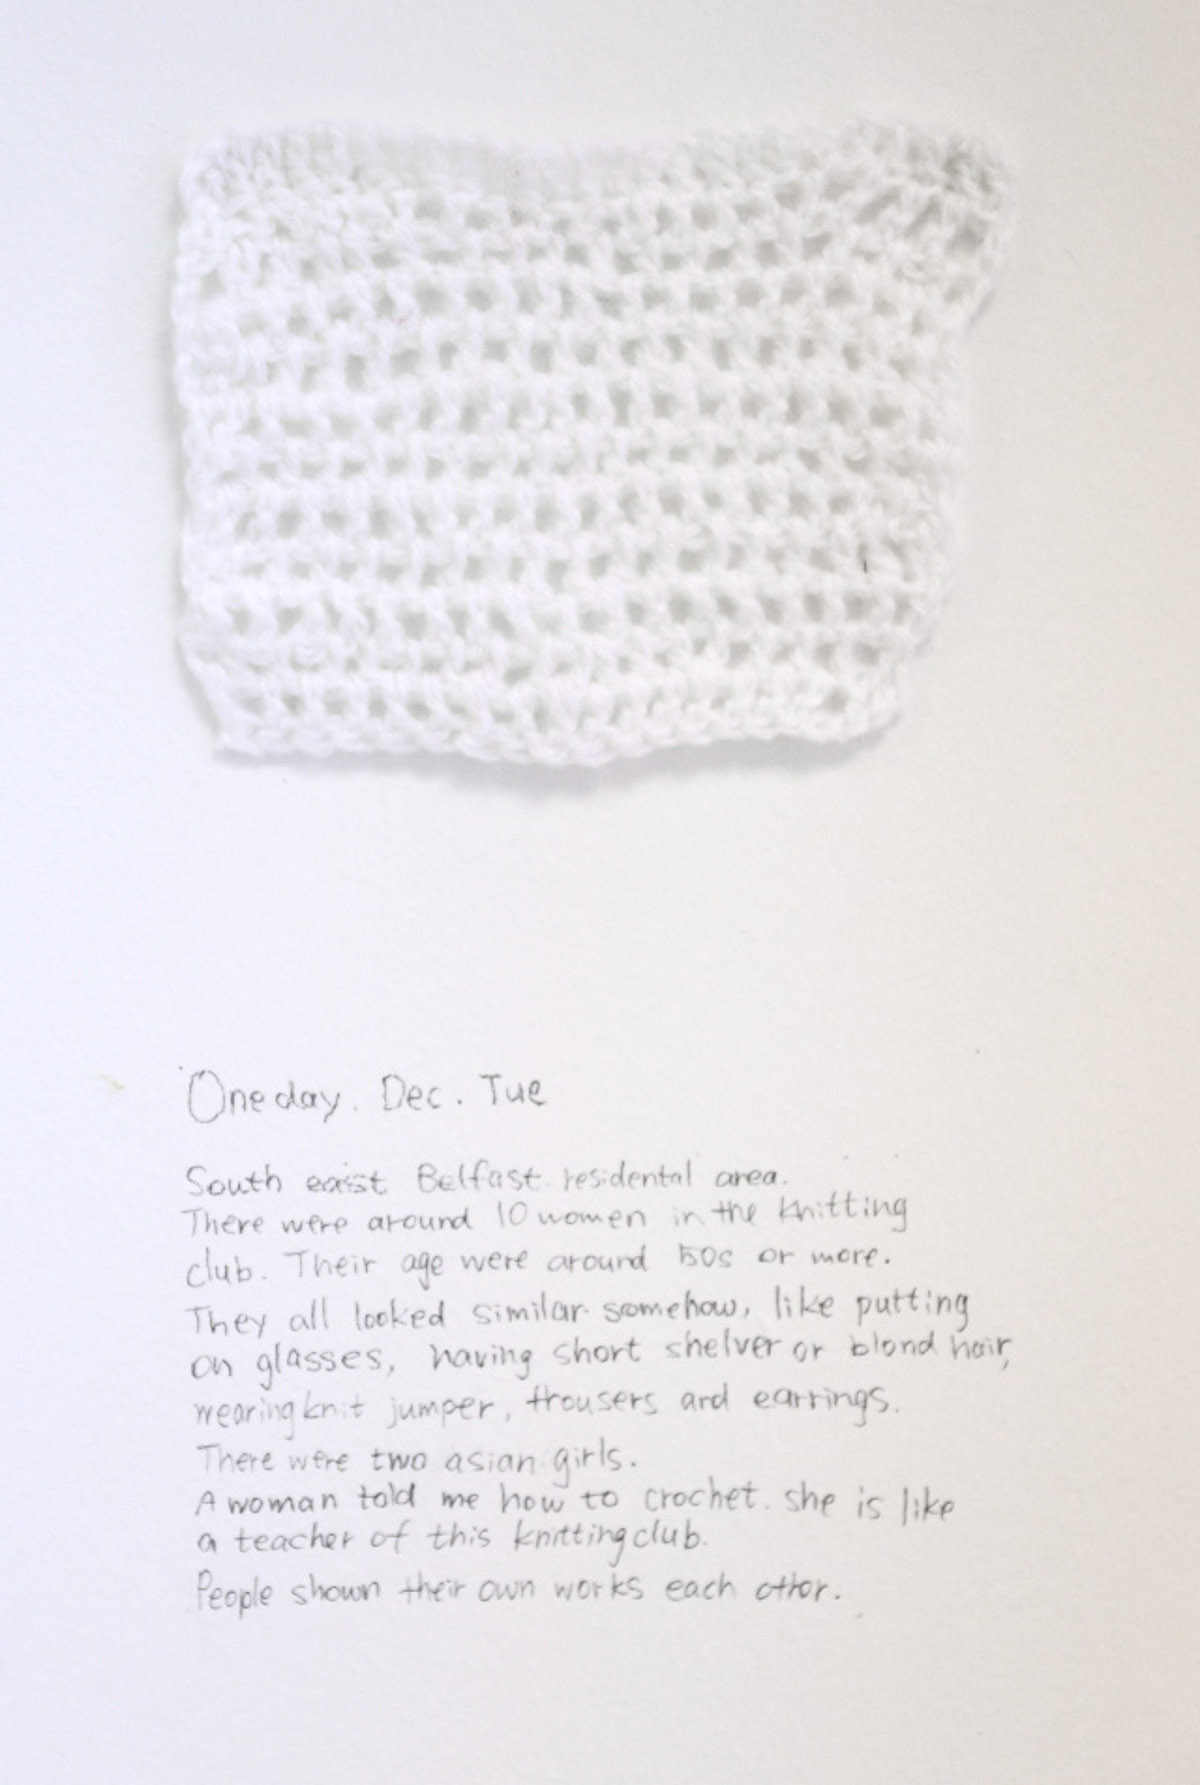 One day. Dec. Tue
South east Belfast residental area.
There were around 10 women in the knitting
club. Their age were around 50s or more.
They all looked similar somehow, like putting
on glasses, having short shelver or blond hair,
wearing knit jumper, trousers and earrings.
There were two asian girls.
A woman told me how to crochet. she is like
a teacher of this knitting club.
People shown their own works each other.